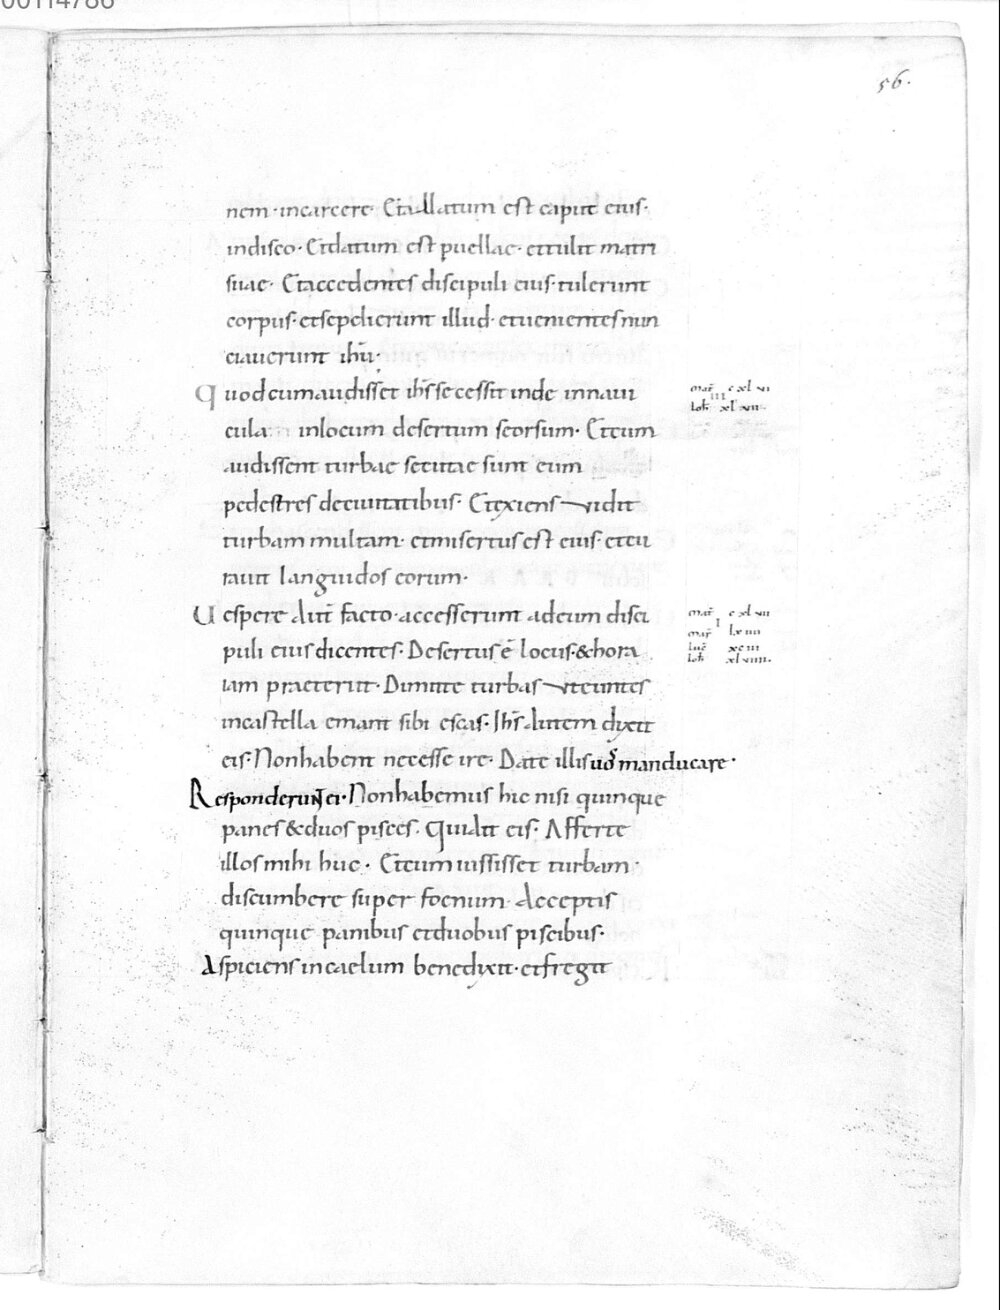 56.
nem · incarcere · Etallatum est caput eius ·
indisco · Etdatum est puellae · ettulit matri
suae · Etaccedentes discipuli eius · tulerunt
corpus · etsepelierunt illud · etuenientes nun
ciauerunt ihū ·
Quodcumaudisset ihs̄ secessit inde innaui
cula inlocum desertum seorsum · Etcum
audissent turbae secutae sunt eum
pedestres deciuitatibus · Etexiens uidit
turbam multam · etmisertus est eius · etcu
rauit languidos eorum ·
Uespere aut̄ facto · accesserunt adeum disci
puli eius dicentes · Desertus ē locus · & hora
iam praeteriit · Dimitte turbas uteuntes
incastella emant sibi escas · Ihs̄ autem dixit
eis · Nonhabent necesse ire · Date illis uos manducare ·
Responderunt ei · Nonhabemus hic nisi quinque
panes & duos pisces · Quiait eis · Afferte
illos mihi huc · Etcum iussisset turbam ·
discumbere super foenum · Acceptis
quinque panibus etduobus piscibus ·
Aspiciens incaelum benedixit · etfregit